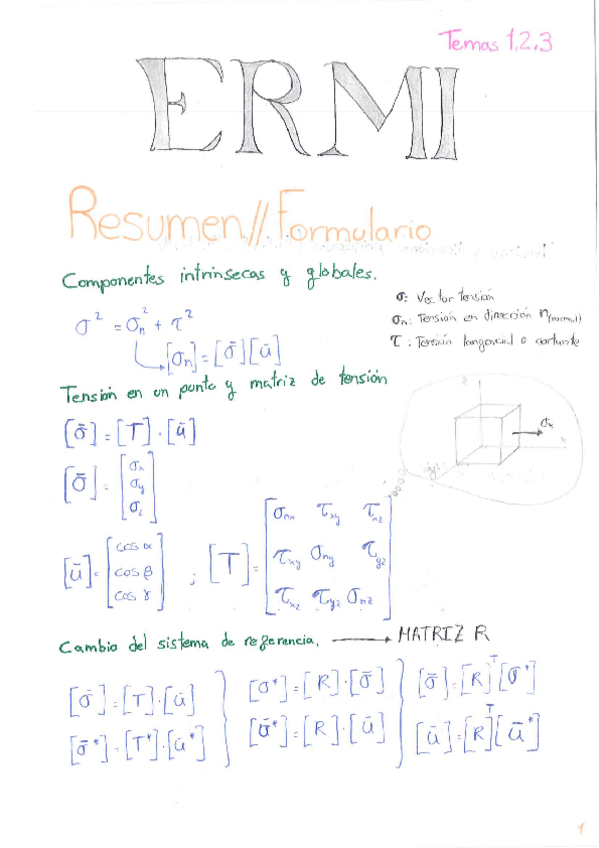 Temas 1,2,3
ERMI
Resumen // Formulario
Componentes intrínsecas y globales.
σ² = σn² + τ²
[σn] = [σ̄][ū]
σ: Vector tensión
σn: Tensión en dirección n(normal)
τ: Tensión tangencial o cortante
Tensión en un punto y matriz de tensión
[σ̄] = [T]·[ū]
[σ̄] = [σx σy σz]
z
σx
x
y
[ū] = [cos α cos β cos γ] ; [T] = [σnx τxy τxz
τxy σny τyz
τxz τyz σnz]
Cambio del sistema de referencia. → MATRIZ R
[σ̄] = [T]·[ū] } [σ*] = [R]·[σ̄] } [σ̄] = [R]ᵀ[σ̄*]
[σ̄*] = [T*]·[ū*] } [ū*] = [R]·[ū] } [ū] = [R]ᵀ[ū*]
1